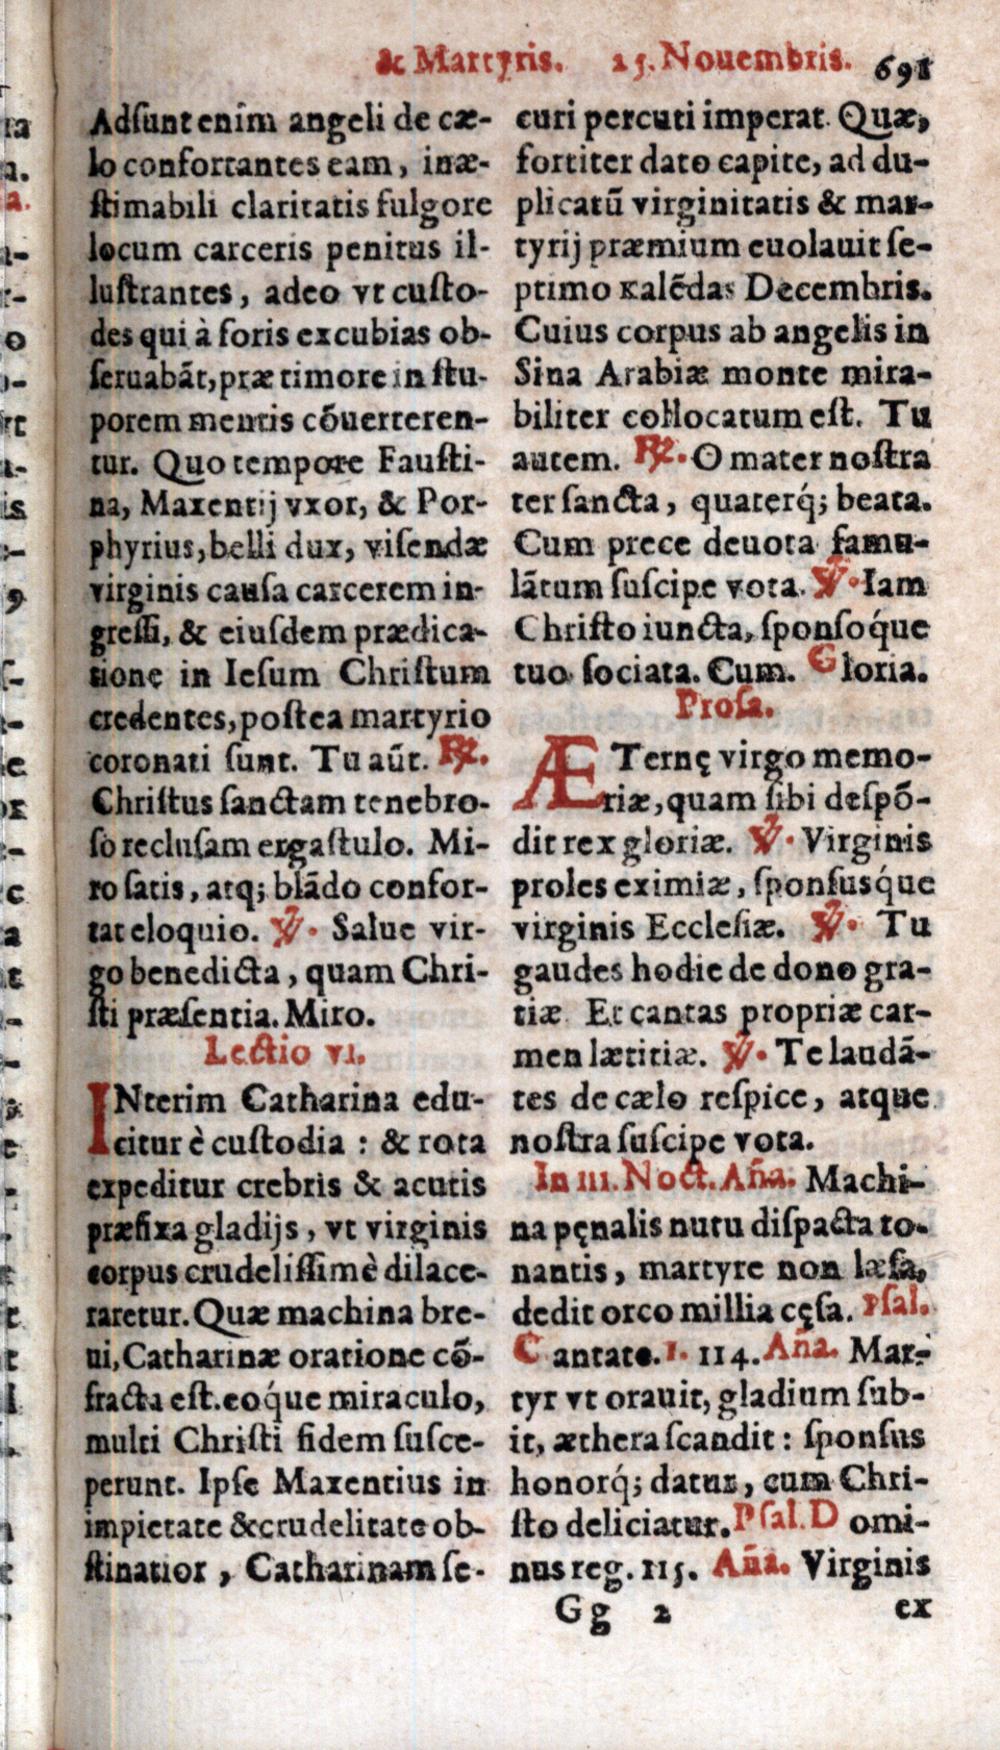 & Martyris. 25. Nouembris. 691
Adſunt enim angeli de cæ-
lo confortantes eam, inæ-
ſtimabili claritatis fulgore
locum carceris penitus il-
luſtrantes, adeo vt cuſto-
des qui à foris excubias ob-
ſeruabãt, præ timore in ſtu-
porem mentis cõuerteren-
tur. Quo tempore Fauſti-
na, Maxentij vxor, & Por-
phyrius, belli dux, viſendæ
virginis cauſa carcerem in-
greſſi, & eiuſdem prædica-
tione in Ieſum Chriſtum
credentes, poſtea martyrio
coronati ſunt. Tu aũt. ℟.
Chriſtus ſanctam tenebro-
ſo recluſam ergaſtulo. Mi-
ro ſatis, atq; blãdo confor-
tat eloquio. ℣. Salue vir-
go benedicta, quam Chri-
ſti præſentia. Miro.
Lectio vi.
INterim Catharina edu-
citur è cuſtodia : & rota
expeditur crebris & acutis
præfixa gladijs, vt virginis
corpus crudeliſſimè dilace-
raretur. Quæ machina bre-
ui, Catharinæ oratione cõ-
fracta eſt. eoq́ue miraculo,
multi Chriſti fidem ſuſce-
perunt. Ipſe Maxentius in
impietate & crudelitate ob-
ſtinatior, Catharinam ſe-
curi percuti imperat. Quæ,
fortiter dato capite, ad du-
plicatũ virginitatis & mar-
tyrij præmium euolauit ſe-
ptimo kalẽdas Decembris.
Cuius corpus ab angelis in
Sina Arabiæ monte mira-
biliter collocatum eſt. Tu
autem. ℟. O mater noſtra
ter ſancta, quaterq́; beata.
Cum prece deuota famu-
lãtum ſuſcipe vota. ℣. Iam
Chriſto iuncta, ſponſoq́ue
tuo ſociata. Cum. Gloria.
Proſa.
ÆTernę virgo memo-
riæ, quam ſibi deſpõ-
dit rex gloriæ. ℣. Virginis
proles eximiæ, ſponſuſq́ue
virginis Eccleſiæ. ℣. Tu
gaudes hodie de dono gra-
tiæ. Et cantas propriæ car-
men lætitiæ. ℣. Te laudã-
tes de cælo reſpice, atque
noſtra ſuſcipe vota.
In iii. Noct. Añа. Machi-
na pęnalis nutu diſpacta to-
nantis, martyre non læſa,
dedit orco millia cęſa. Pſal.
Cantate. 1. 114. Aña. Mar-
tyr vt orauit, gladium ſub-
it, æthera ſcandit : ſponſus
honorq́; datur, cum Chri-
ſto deliciatur. Pſal. Domi-
nus reg. 115. Aña. Virginis
Gg 2 ex